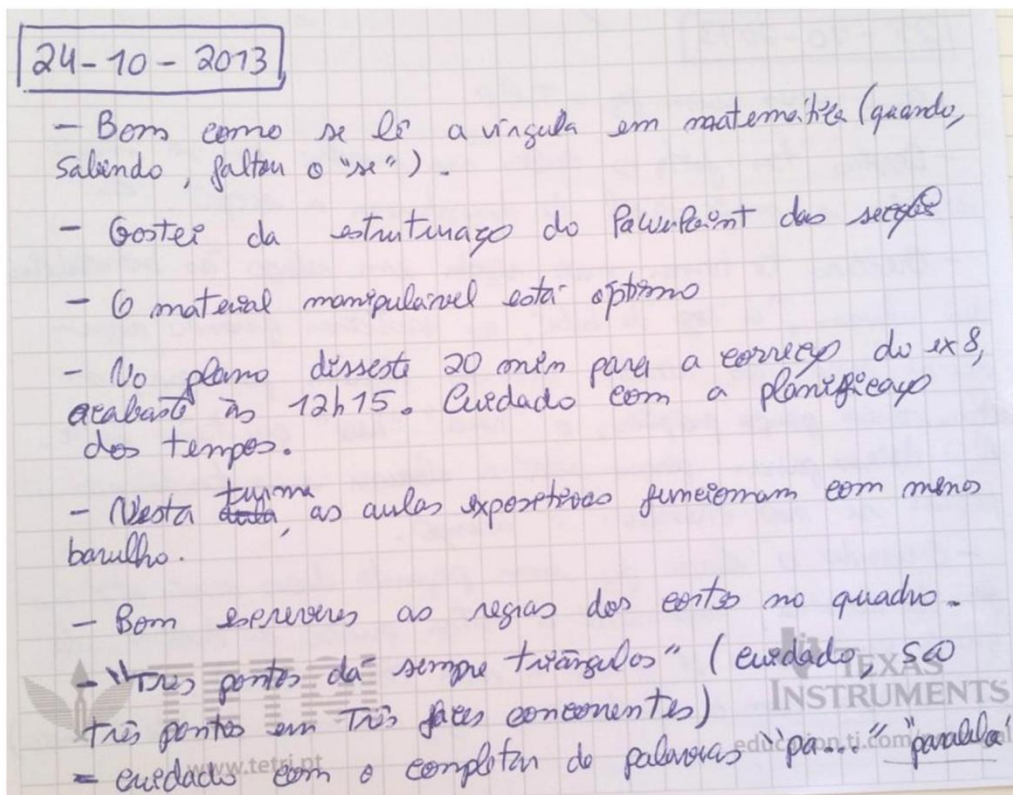 24-10-2013
- Bom como se lê a vírgula em matemática (quando,
sabendo, faltou o "se").
- Gostei da estruturaço do PowerPoint das secções
- O material manipulável está óptimo
- No plano disseste 20 min para a correcço do ex 8,
acabaste às 12h15. Cuidado com a planificaço
dos tempos.
- Nesta turma, as aulas expositivas funcionam com menos
barulho.
- Bom escreveres as regras dos cortes no quadro.
- "Três pontos dá sempre triângulos" (cuidado, são
três pontos em três faces concorrentes)
- cuidado com o completar de palavras "pa..." "paralela"
TETRI
www.tetri.pt
TEXAS
INSTRUMENTS
education.ti.com/portugal